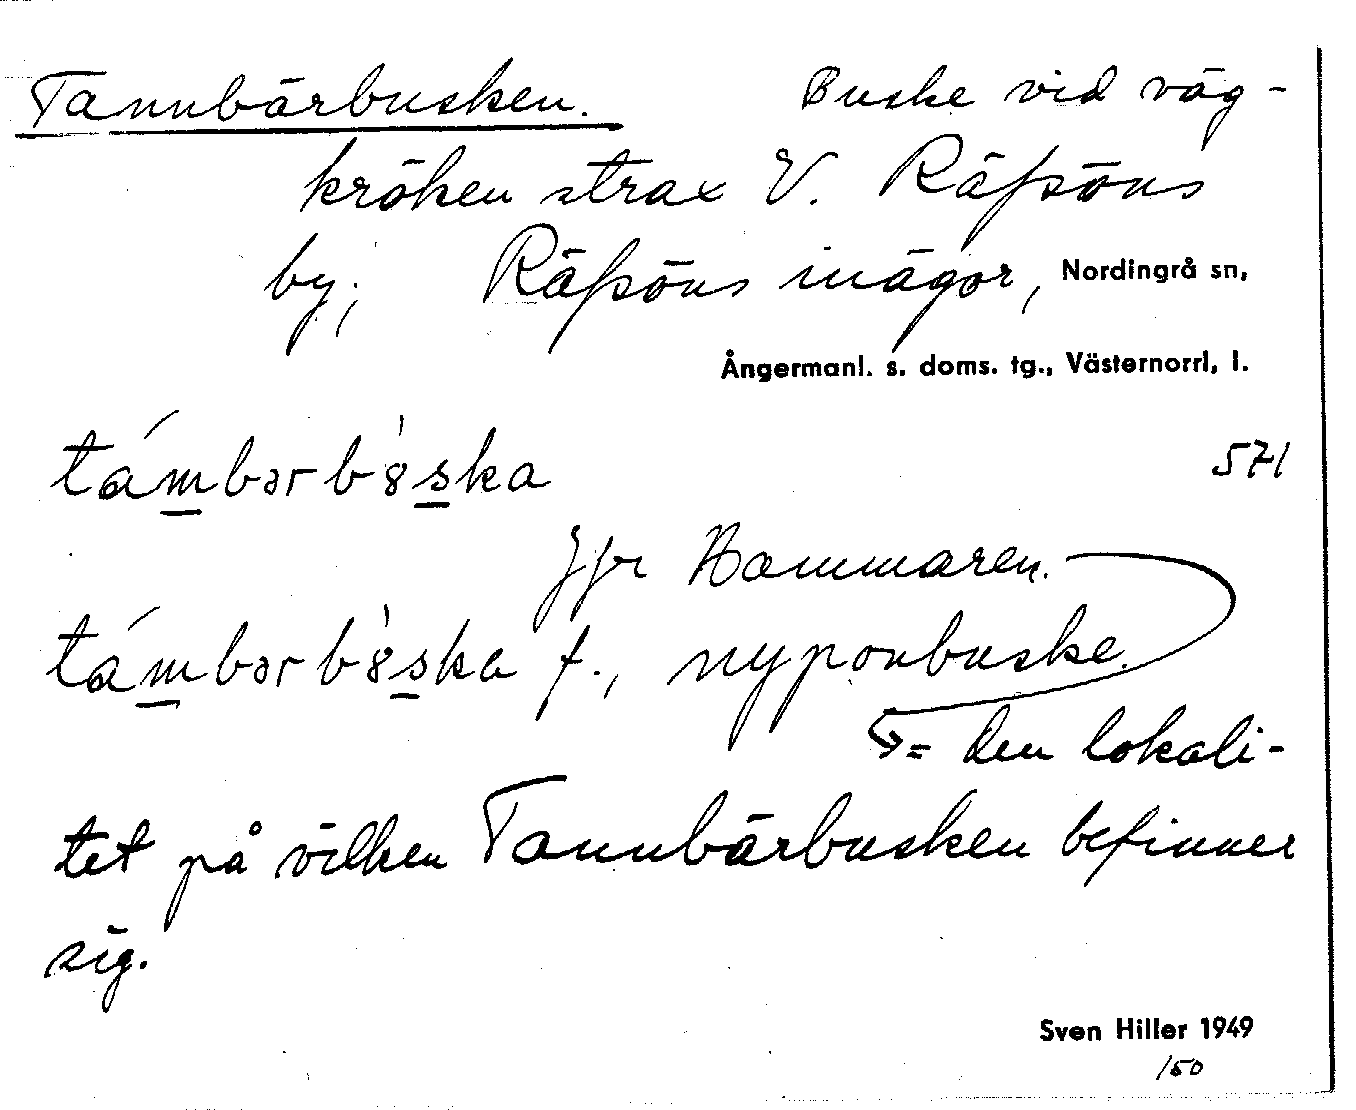 Tannbärbusken. Buske vid väg-
kröken strax V. Räfsöns
by; Räfsöns inägor, Nordingrå sn,
Ångermanl. s. doms. tg., Västernorrl. l.
támbərb`8ska 571
Jfr Hammaren.
támbərb`8ska f., nyponbuske.
= den lokali-
tet på vilken Tannbärbusken befinner
sig.
Sven Hiller 1949
/50